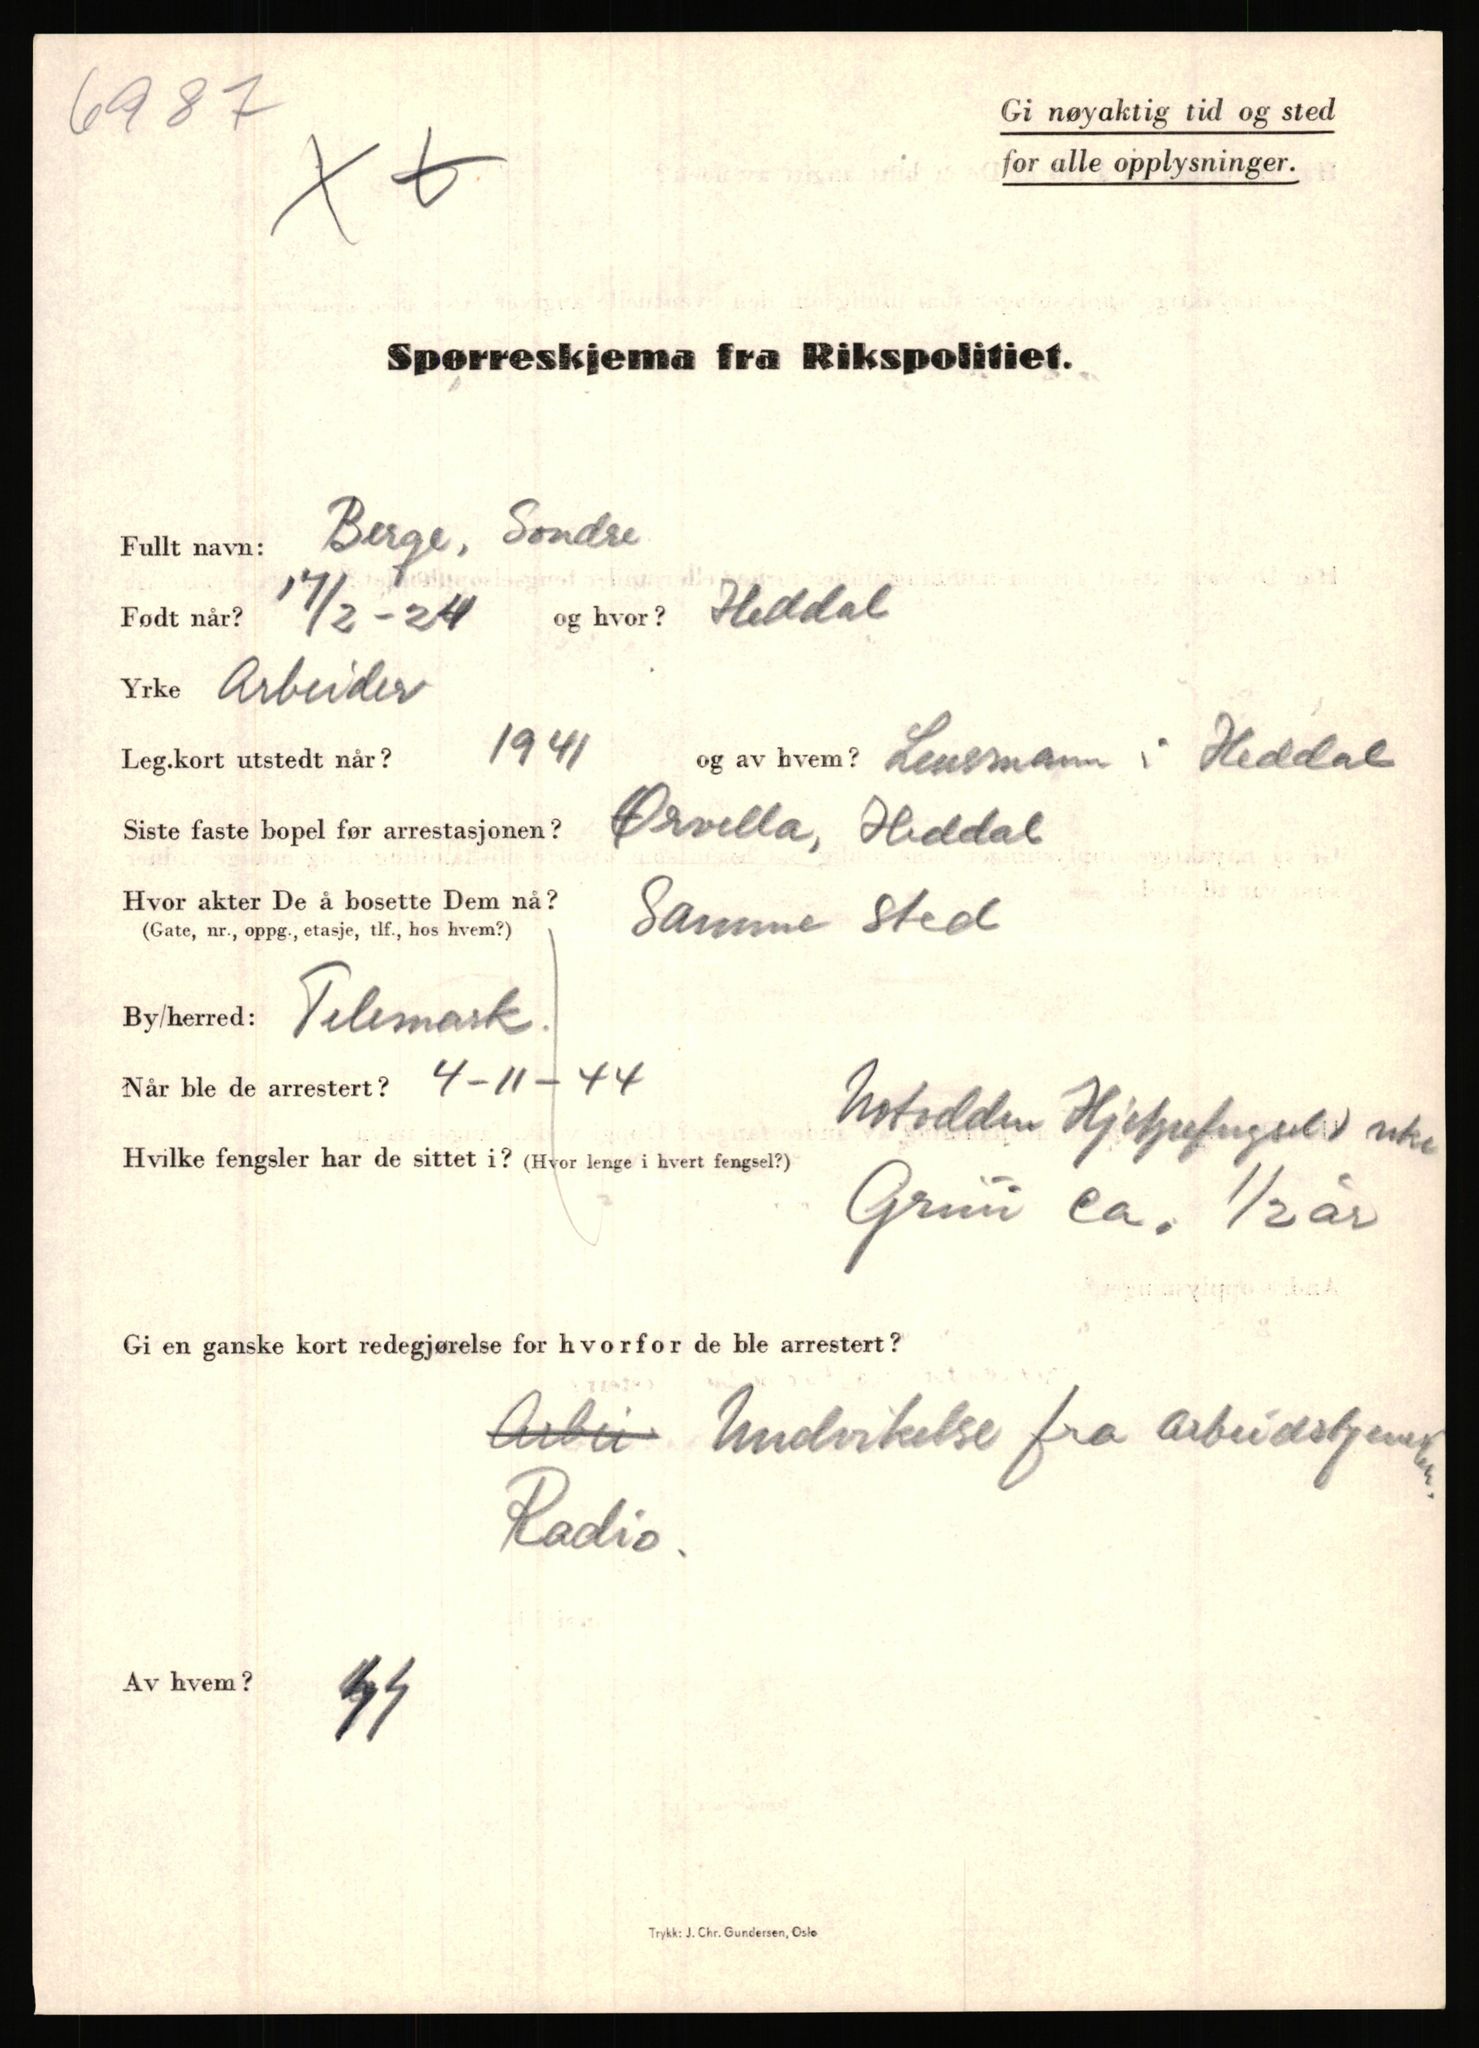 6987
X t
Gi nøyaktig tid og sted
for alle opplysninger.
Spørreskjema fra Rikspolitiet.
Fullt navn: Berge, Sondre
Født når? 17/2-24 og hvor? Heddal
Yrke Arbeider
Leg.kort utstedt når? 1941 og av hvem? Lensmann i Heddal
Siste faste bopel før arrestasjonen? Ørvella, Heddal
Hvor akter De å bosette Dem nå? Samme sted
(Gate, nr., oppg., etasje, tlf., hos hvem?)
By/herred: Telemark.
Når ble de arrestert? 4-11-44
Notodden Hjelpefengsel 1 uke
Hvilke fengsler har de sittet i? (Hvor lenge i hvert fengsel?)
Grini ca. 1/2 år
Gi en ganske kort redegjørelse for hvorfor de ble arrestert?
Arbei Undvikelse fra Arbeidstjenesten.
Radio.
Av hvem?
Trykk: J. Chr. Gundersen, Oslo